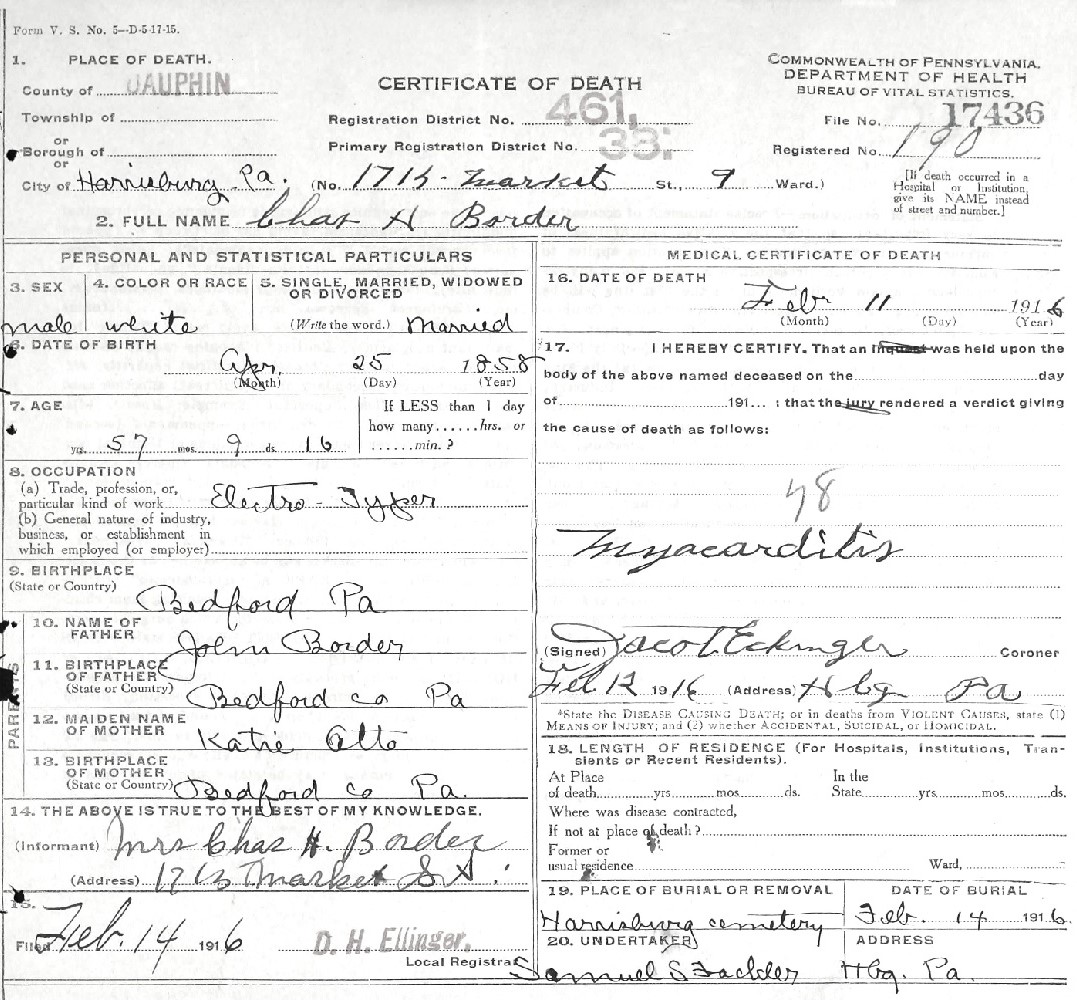 Form V. S. No. 5—D-5-17-15.
1. PLACE OF DEATH.
County of DAUPHIN
Township of
or
Borough of
or
City of Harrisburg Pa.
CERTIFICATE OF DEATH
Registration District No. 461,
Primary Registration District No. 33.
COMMONWEALTH OF PENNSYLVANIA.
DEPARTMENT OF HEALTH
BUREAU OF VITAL STATISTICS.
File No. 17436
Registered No. 190
(No. Market St., 9 Ward.)
[If death occurred in a Hospital or Institution, give its NAME instead of street and number.]
2. FULL NAME Chas H Border
PERSONAL AND STATISTICAL PARTICULARS
3. SEX
male
4. COLOR OR RACE
white
5. SINGLE, MARRIED, WIDOWED OR DIVORCED
(Write the word.) Married
6. DATE OF BIRTH
Apr. 25 1858
(Month) (Day) (Year)
7. AGE
yrs. 57 mos. 9 ds. 16
If LESS than 1 day
how many......hrs. or
......min.?
8. OCCUPATION
(a) Trade, profession, or,
particular kind of work Electro-Typer
(b) General nature of industry,
business, or establishment in
which employed (or employer)
9. BIRTHPLACE
(State or Country)
Bedford Pa
PARENTS
10. NAME OF FATHER
John Border
11. BIRTHPLACE OF FATHER
(State or Country)
Bedford co Pa
12. MAIDEN NAME OF MOTHER
Katie Otto
13. BIRTHPLACE OF MOTHER
(State or Country) Bedford co Pa.
14. THE ABOVE IS TRUE TO THE BEST OF MY KNOWLEDGE.
(Informant) Mrs Chas H. Border
(Address) Market St.
15.
Filed Feb. 14 1916
D. H. Ellinger,
Local Registrar
MEDICAL CERTIFICATE OF DEATH
16. DATE OF DEATH
Feb 11 1916
(Month) (Day) (Year)
17. I HEREBY CERTIFY. That an Inquest was held upon the
body of the above named deceased on the day
of 191... : that the jury rendered a verdict giving
the cause of death as follows:
78
Myacarditis
(Signed) Jacob Eckinger Coroner
Feb 12 1916 (Address) Hbg Pa
*State the DISEASE CAUSING DEATH; or in deaths from VIOLENT CAUSES, state (1)
MEANS OF INJURY; and (2) whether ACCIDENTAL, SUICIDAL, or HOMICIDAL.
18. LENGTH OF RESIDENCE (For Hospitals, Institutions, Tran-
sients or Recent Residents).
At Place
of death yrs. mos. ds.
In the
State yrs. mos. ds.
Where was disease contracted,
If not at place of death?
Former or
usual residence Ward,
19. PLACE OF BURIAL OR REMOVAL
Harrisburg cemetery
DATE OF BURIAL
Feb. 14 1916
20. UNDERTAKER
Samuel S Fackler
ADDRESS
Hbg. Pa